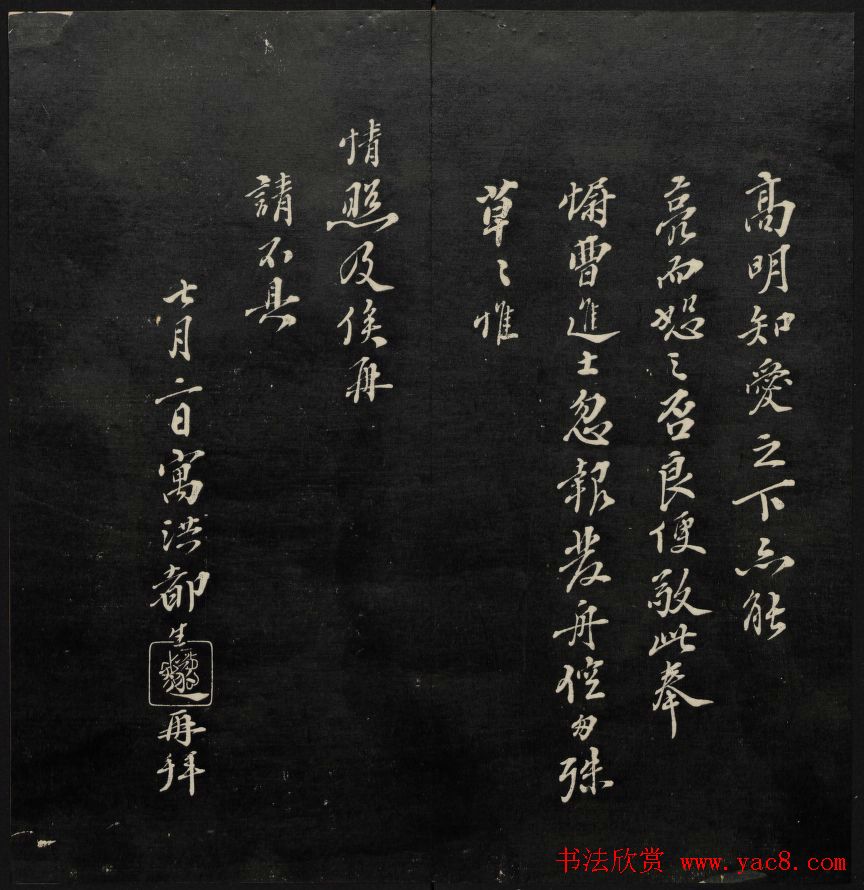 高明知愛之下亦能
亮而恕之否良便敬此奉
曹進士忽報發舟倥匆殊
草〻惟
情照及俟再
請不具
七月二日寓洪都生再拜
书法欣赏 www.yac8.com